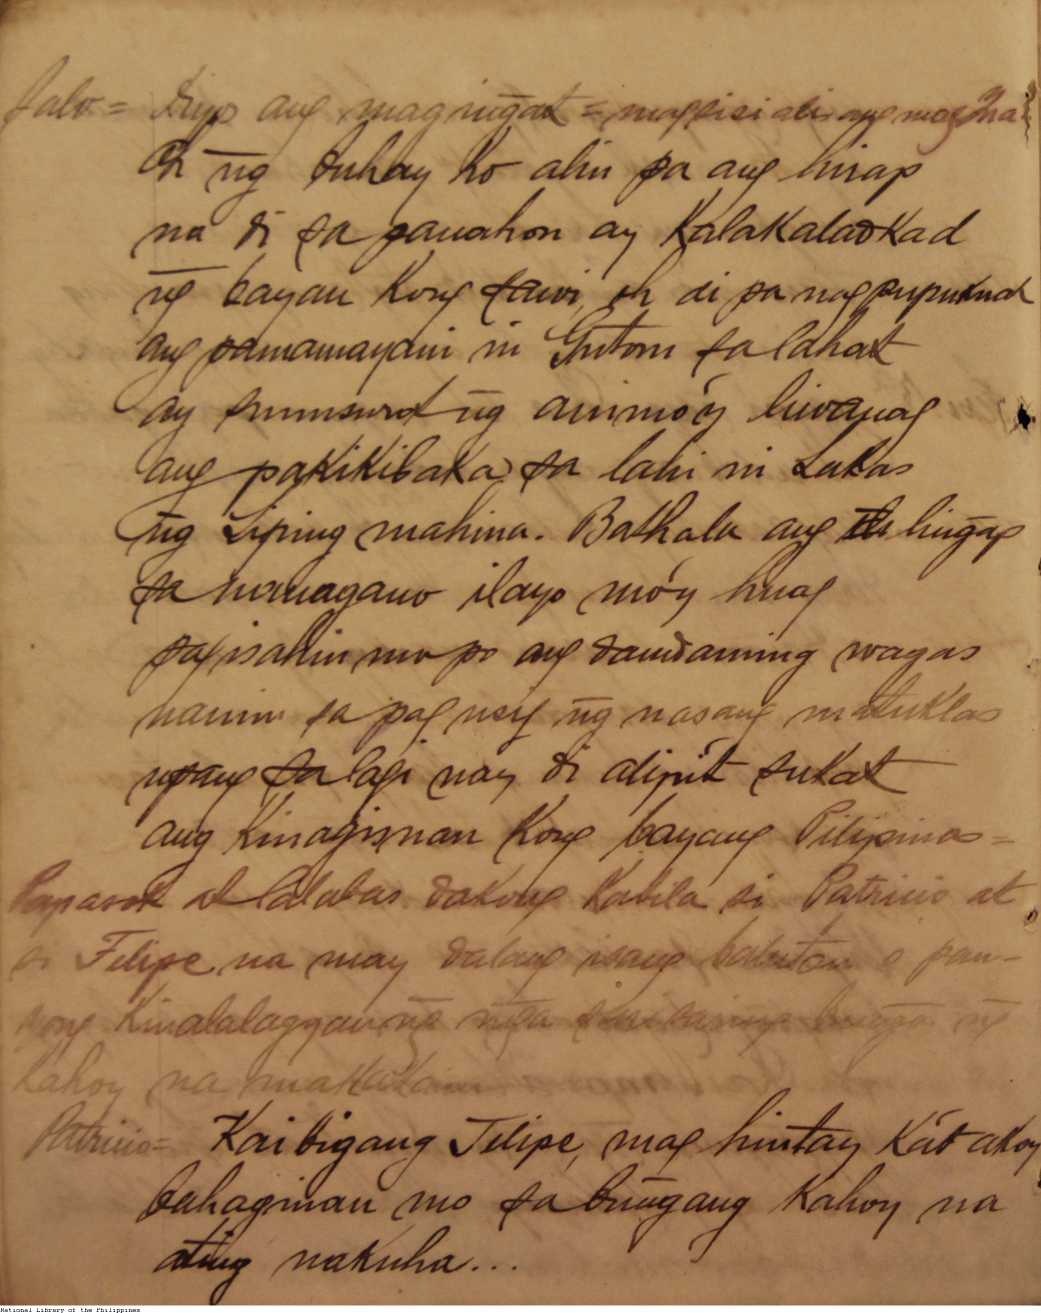 Kayo ang magingat = magsisialis ang mag
Oh ng buhay ko alin pa ang hirap
na di sa panahon ay Kalakaladkad
ng bayan Kong sawi, oh di pa nag pupuknat
ang pamamayani ni Gutom sa lahat
ay sumusurot ng animó'y liwanag
ang pakikibaka sa lahi ni Lakas
ng Liping mahina. Bathala ang lingap
sa nanaganó ilayo mó'y huag
pag isahin mo po ang damdaming wagas
namin sa pag usig ng nasang matuklas
upang sa lagi nay di alipit sukat
ang Kinagisnan Kong bayang Pilipinas =
Papasok at lalabas dakong Kabila si Patricio at
si Felipe na may dalang isang balutan o pan-
yong Kinalalagyan ng mga bunga ng
kahoy na makakain
Patricio = Kaibigang Felipe, mag hintay Ká't akoy
bahaginan mo sa bungang Kahoy na
ating nakuha...
National Library of the Philippines